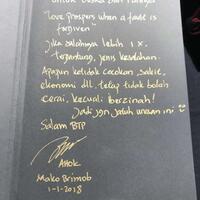 untuk
dan
"Love prospers when a fault is
forgiven"
Jika salahnya lebih 1x.
Tergantung, jenis kesalahan.
Apapun ketidak cocokan, sakit,
ekonomi dll, tetap tidak boleh
cerai, kecuali berzinah!
Jadi jgn jatuh urusan ini
Salam BTP
Ahok
Mako Brimob
1-1-2018